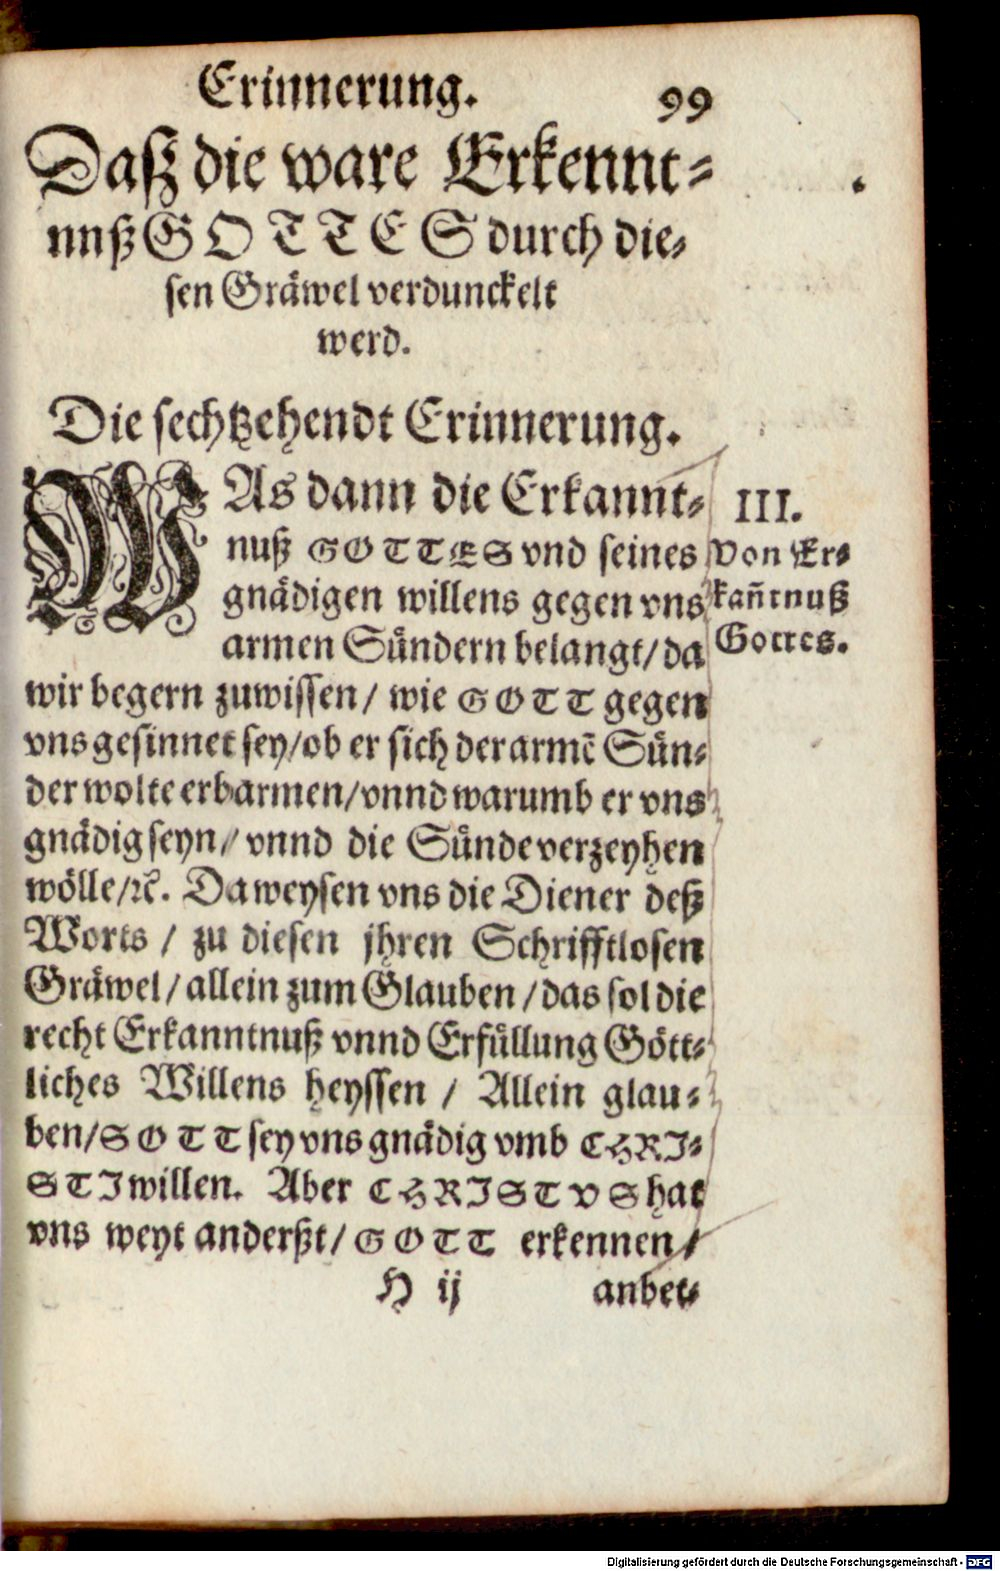 Erinnerung. 99
Dasz die ware Erkennt-
nuß GOTTES durch die-
sen Gräwel verdunckelt
werd.
Die sechtzehendt Erinnerung.
WAs dann die Erkannt-
nuß GOTTES vnd seines
gnädigen willens gegen vns
armen Sündern belangt/ da
wir begern zuwissen/ wie GOTT gegen
vns gesinnet sey/ ob er sich der armẽ Sün-
der wolte erbarmen/ vnnd warumb er vns
gnädig seyn/ vnnd die Sünde verzeyhen
wölle/ ꝛc. Da weysen vns die Diener deß
Worts / zu diesen jhren Schrifftlosen
Gräwel/ allein zum Glauben/ das sol die
recht Erkanntnuß vnnd Erfüllung Gött-
liches Willens heyssen / Allein glau-
ben/ GOTT sey vns gnädig vmb CHRI-
STI willen. Aber CHRISTVS hat
vns weyt anderßt/ GOTT erkennen/
H ij anbet-
III.
Von Er-
kañtnuß
Gottes.
Digitalisierung gefördert durch die Deutsche Forschungsgemeinschaft - DFG